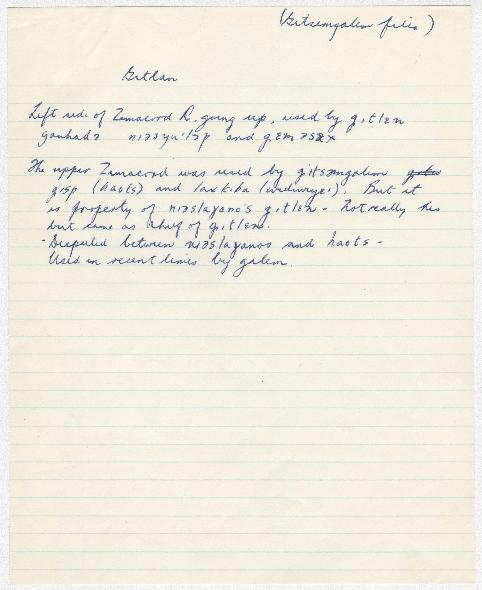 (Gitzemgalem files)
Gitlan
Left side of Zimacord R. going up, used by gitlen
ganhadə niəsyu'ləp and
The upper Zimacord was used by gitsəmgaləm
gisp (haots) and laxkiba (wudiwiye'). But it
is property of niəslaganos gitlen - Not really his
but came as chief of gitlen.
- Disputed between niəslaganos and haots -
Used in recent times by galem.